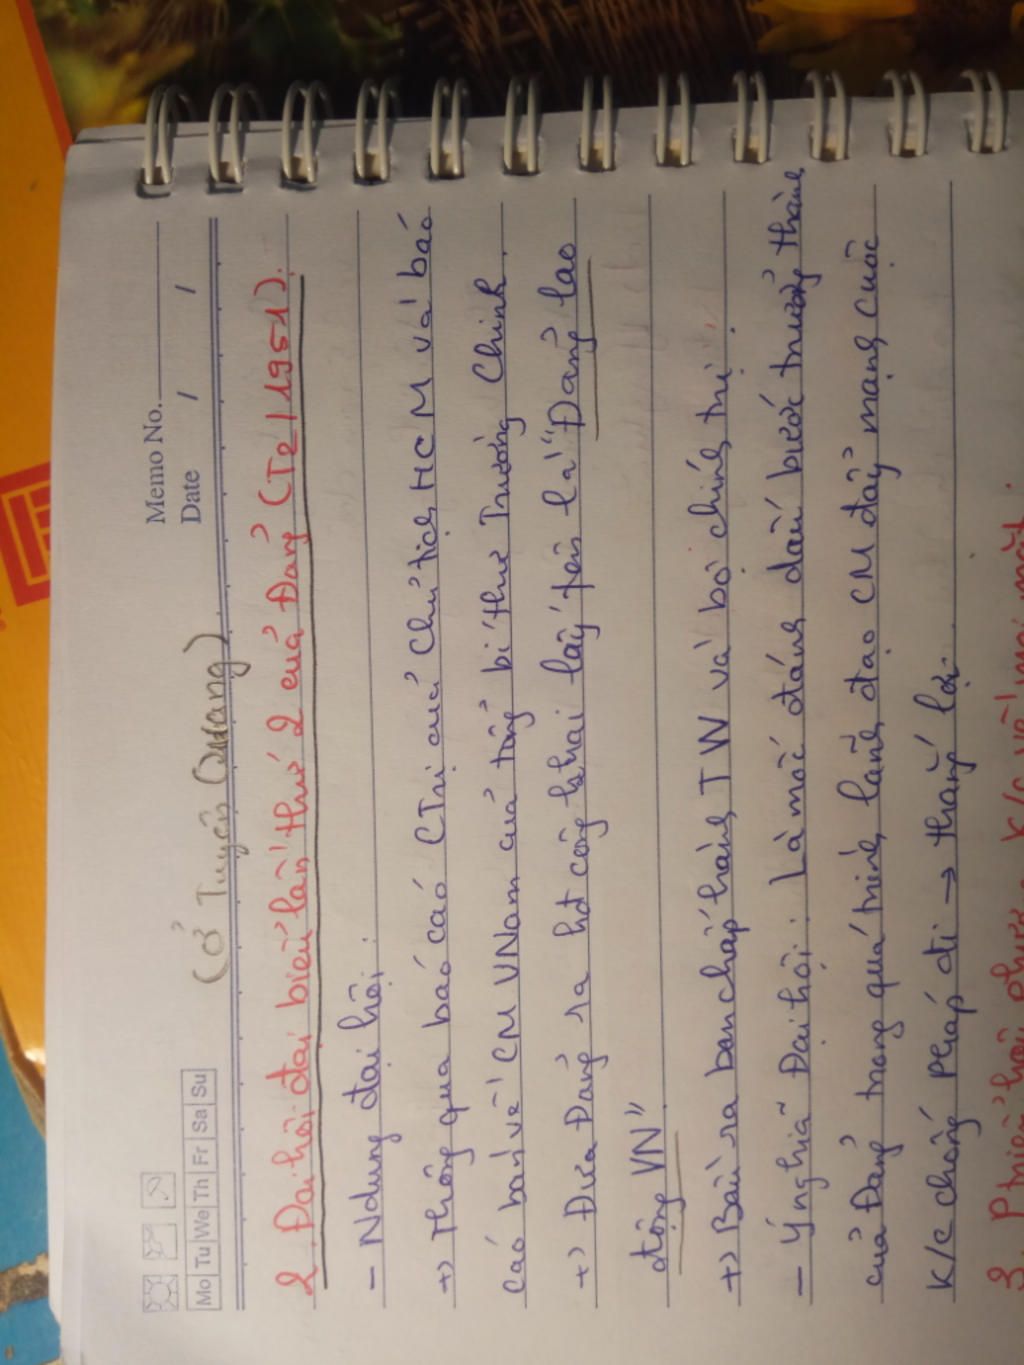 Memo No.
Mo Tu We Th Fr Sa Su
Date / /
(ở Tuyên Quang)
2. Đại hội đại biểu lần thứ 2 của Đảng (T2/1951).
- Ndung đại hội:
+) Thông qua báo cáo CTrị của Chủ tịch HCM và báo
cáo bàn về CM VNam của tổng bí thư Trường Chinh.
+) Đưa Đảng ra hđ công khai lấy tên là "Đảng lao
động VN"
+) Bầu ra ban chấp hành TW và bộ chính trị.
- Ý nghĩa Đại hội: Là mốc đánh dấu bước trưởng thành
của Đảng trong quá trình lãnh đạo CM đẩy mạnh cuộc
K/c chống Pháp đi → thắng lợi.
3. Phát hậu phương K/c về mọi mặt.